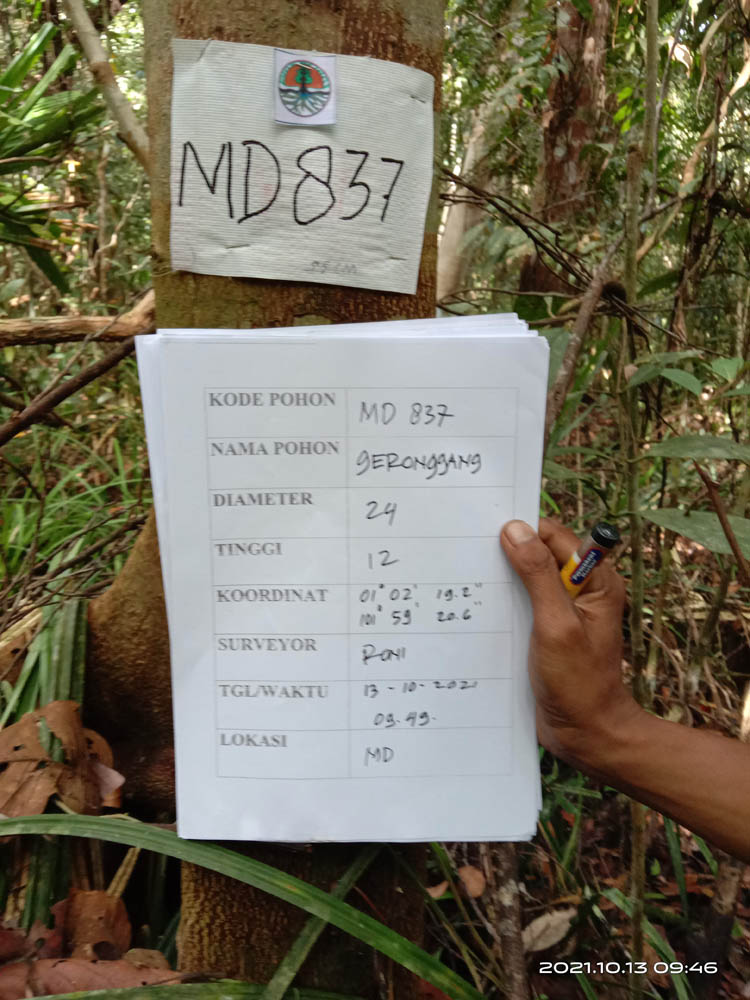 MD 837
KODE POHON MD 837
NAMA POHON gERONggANg
DIAMETER 24
TINGGI 12
KOORDINAT 01° 02' 19.2"
101° 59' 20.6"
SURVEYOR RONI
TGL/WAKTU 13-10-2021
09.49.
LOKASI MD
2021.10.13 09:46